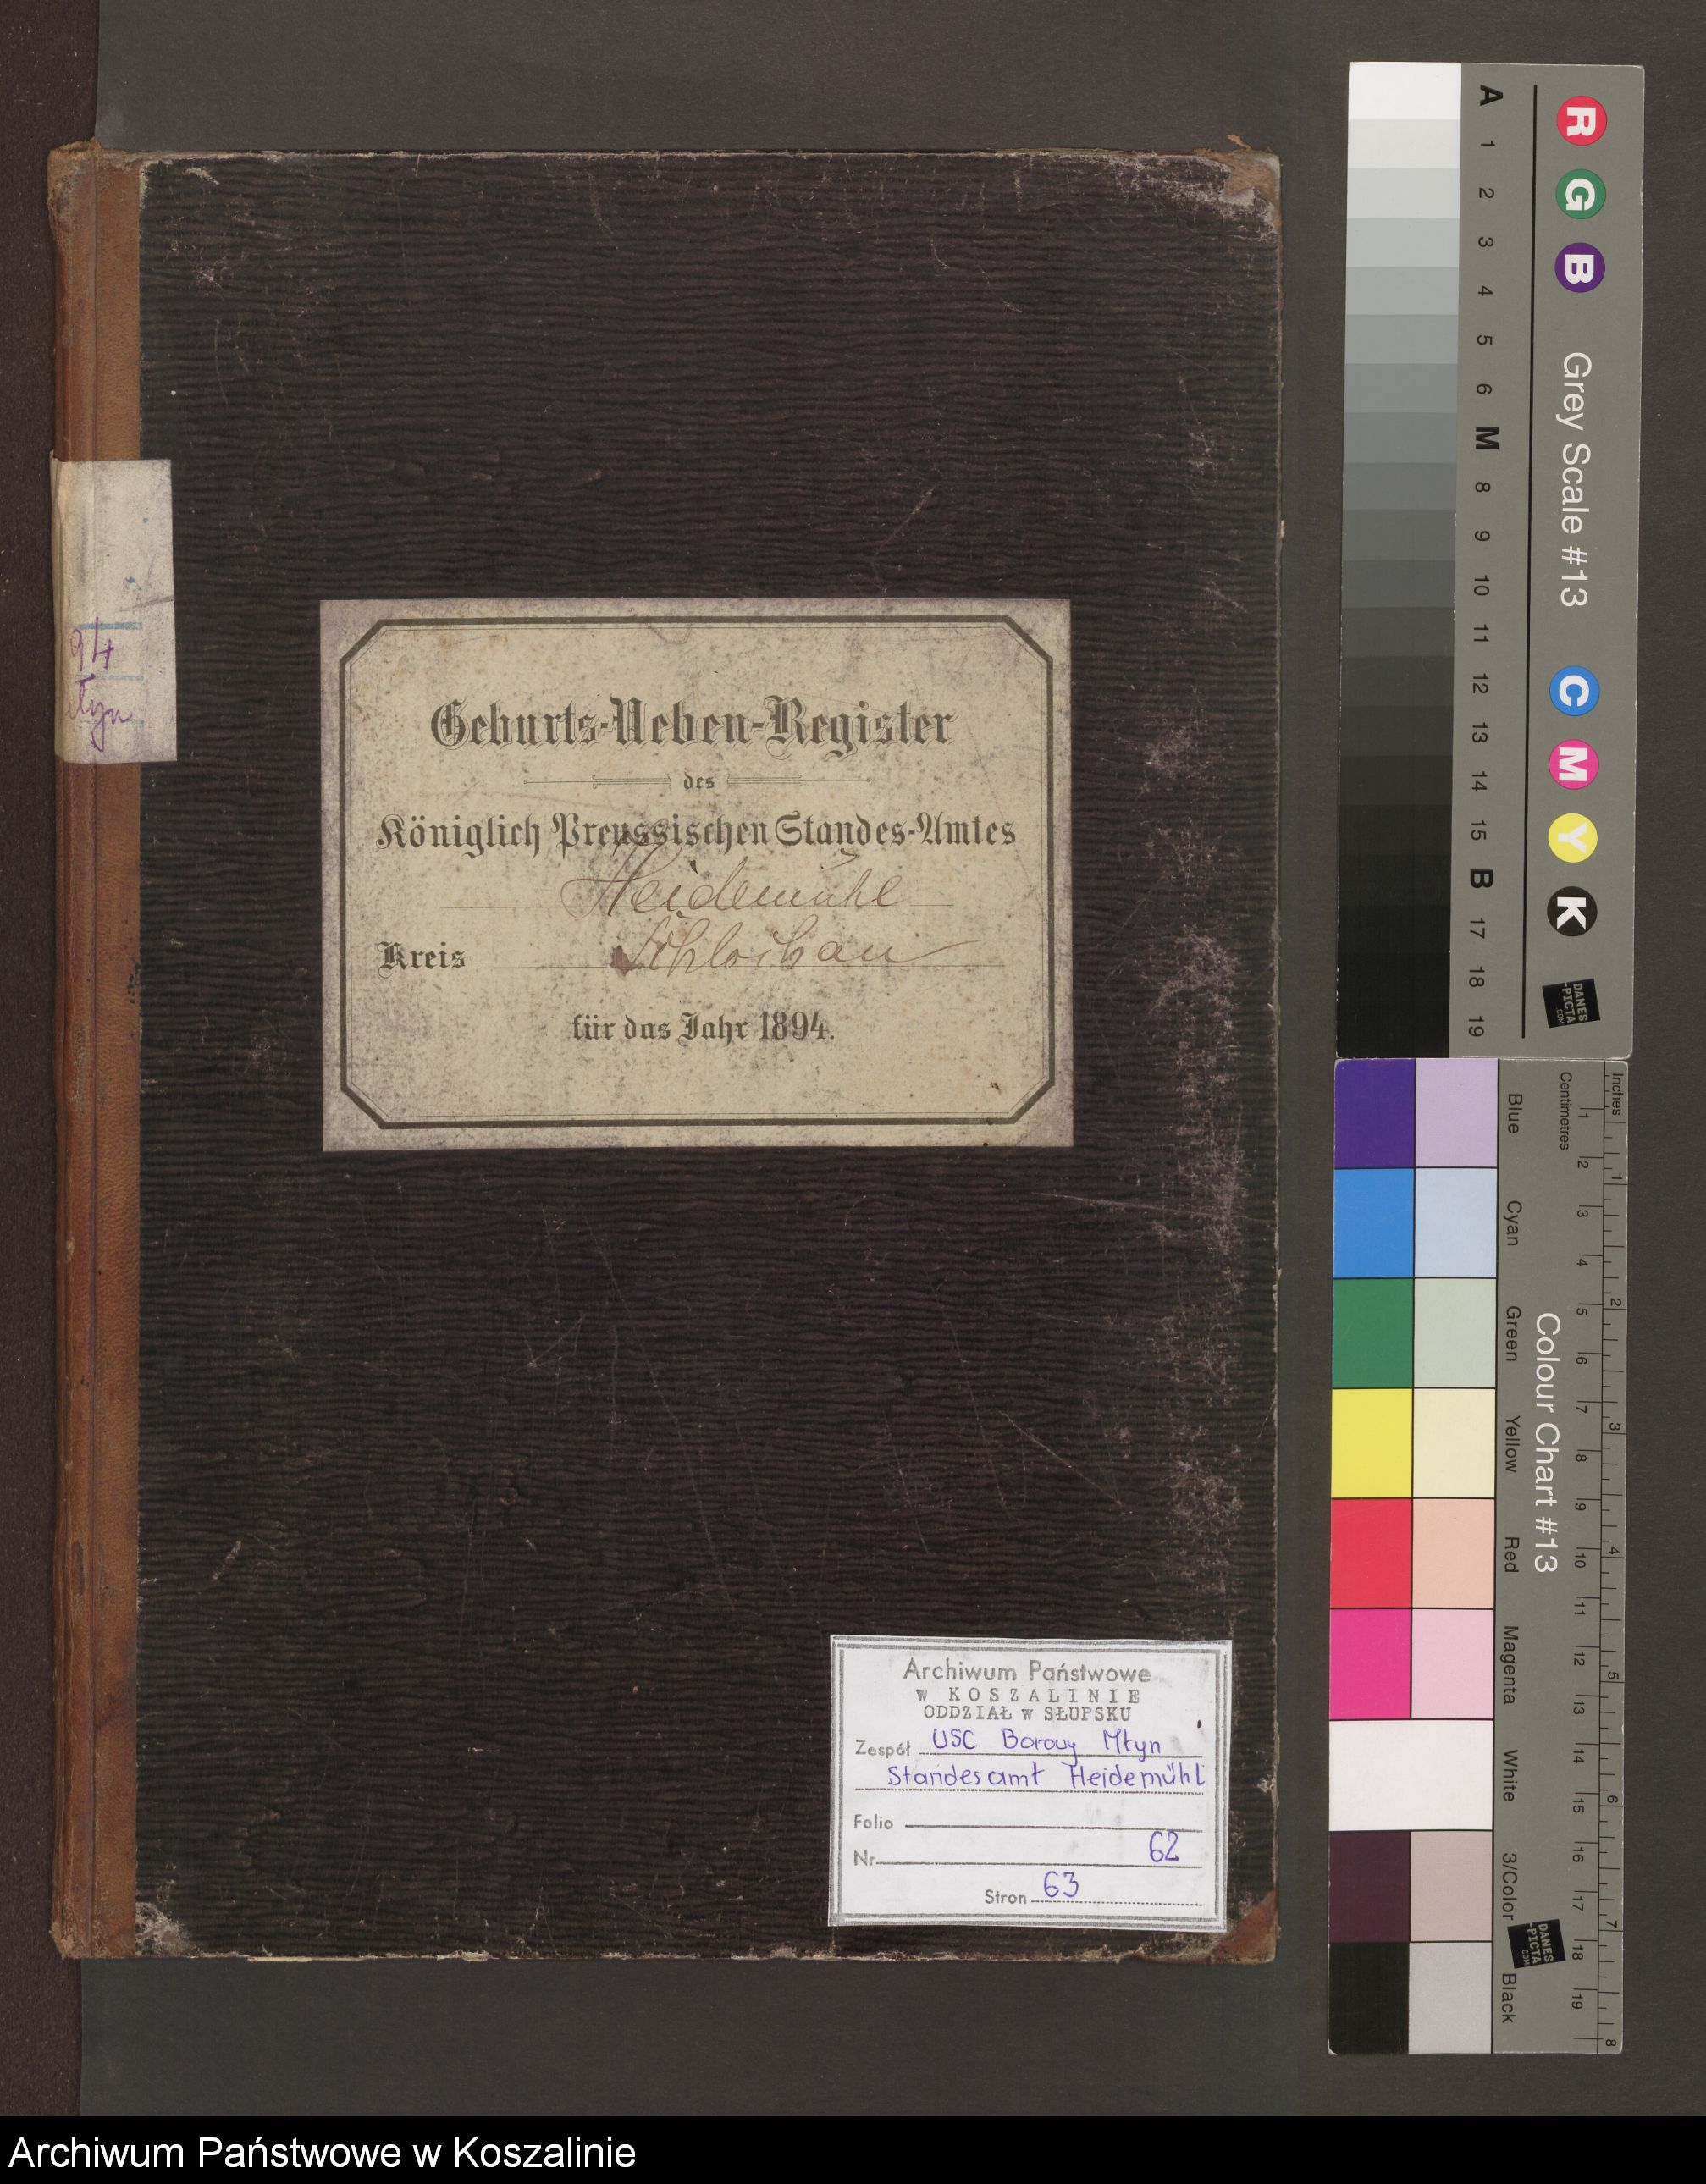 94
Geburts-Neben-Register
des
Königlich Preussischen Standes-Amtes
Heidemühl
Kreis Schlochau
für das Jahr 1894.
Archiwum Państwowe
w KOSZALINIE
ODDZIAŁ w SŁUPSKU
Zespół USC Borowy Młyn
Standesamt Heidemühl
Folio
Nr 62
Stron 63
A 1 2 3 4 5 6 M 8 9 10 11 12 13 14 15 B 17 18 19
R G B Grey Scale #13 C M Y K
DANES
-PICTA
.COM
Blue Cyan Green Yellow Red Magenta White 3/Color Black
Colour Chart #13
DANES
-PICTA
.COM
Centimetres 1 2 3 4 5 6 7 8 9 10 11 12 13 14 15 16 17 18 19
Inches 1 2 3 4 5 6 7 8
Archiwum Państwowe w Koszalinie